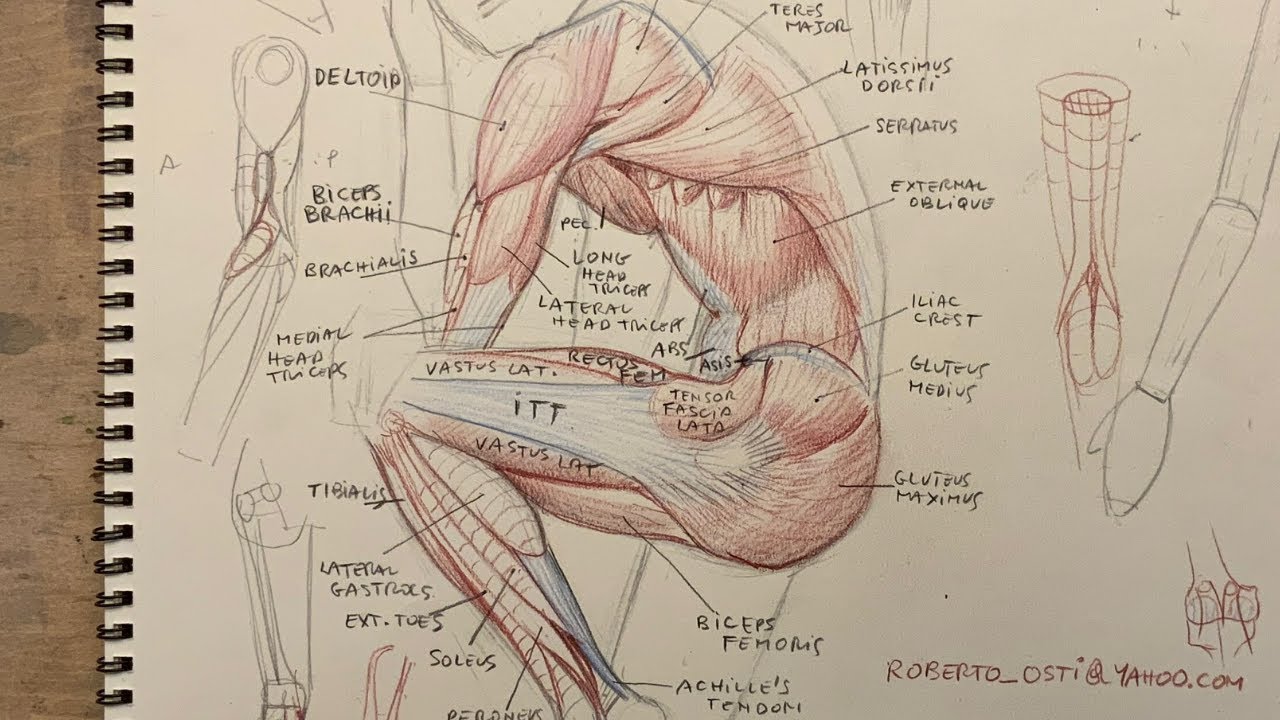 TERES
MAJOR
DELTOID
LATISSIMUS
DORSI
SERRATUS
A
P
BICEPS
BRACHII
EXTERNAL
OBLIQUE
PEC.
BRACHIALIS
LONG
HEAD
TRICEPS
LATERAL
HEAD TRICEPS
ILIAC
CREST
MEDIAL
HEAD
TRICEPS
ABS
ASIS
RECTUS
FEM
VASTUS LAT.
GLUTEUS
MEDIUS
TENSOR
FASCIA
LATA
ITT
VASTUS LAT
TIBIALIS
GLUTEUS
MAXIMUS
LATERAL
GASTROCS.
EXT. TOES
SOLEUS
BICEPS
FEMORIS
ACHILLE'S
TENDON
PERONEUS
ROBERTO_OSTI@YAHOO.COM